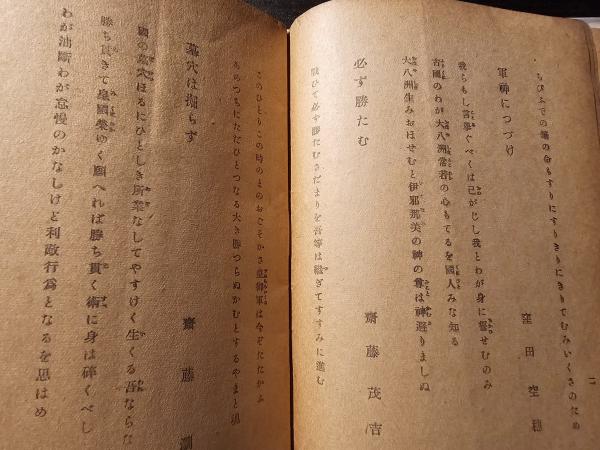 二
窪田空穂
ちひふでの命もすりにすりきりにきりてむみいくさのため
軍神につづけ
我らもし言擧ぐべくは己がじし我とわが身に誓せむのみ
吉國のわが大八洲常若の心もてるを國人みな知る
大八洲生みおほせむと伊邪那美の神の尊は神避りましぬ
必ず勝たむ
齋藤茂吉
戰ひて必ず勝たむさだまりを吾等は繼ぎてすすみに進む
このひとりこの時のまのおごそかさ皇御軍は今ぞたたかふ
あめつちにただひとつなる大き勝つらぬかむとするやまと
墓穴は掘らず
齋藤瀏
國の墓穴ほるにひとしき所業なしてやすけく生くる吾ならな
勝ち貫きて皇國榮ゆく願へれば勝ち貫く術に身は碎くべし
わが油斷わが怠慢のかなしけど利敵行爲となるを思はめ